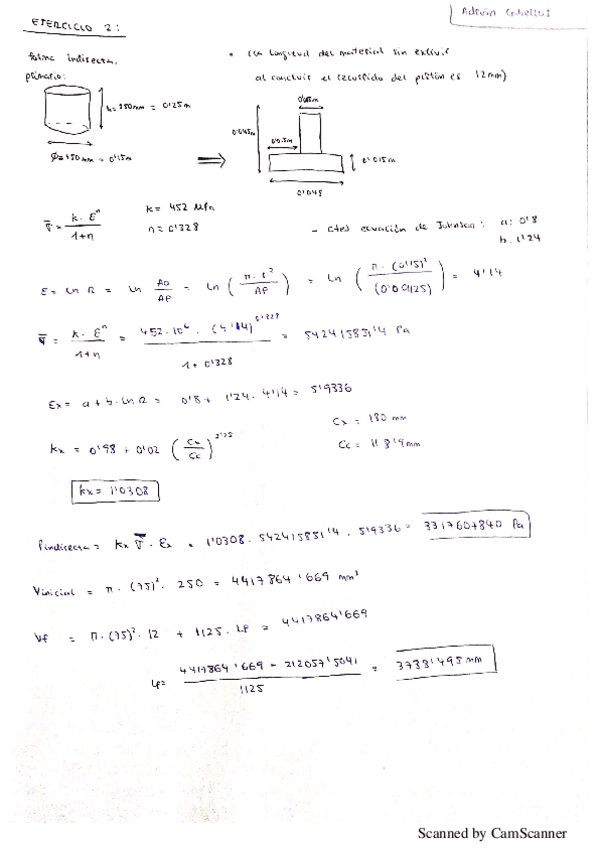 EJERCICIO 2:
forma indirecta.
• (La longitud del material sin extruir
al concluir el recorrido del pistón es 12mm)
primario:
h=250mm = 0'25m
Ø=150mm = 0'15m
⟹
0'045m
0'015m
0'048
σ̄ = k·εⁿ / 1+n
k= 452 MPa
n=0'328
- ctes ecuación de Johnson: a: 0'8
b: 1'24
ε = ln R = ln Ao/AF = ln (π·r²/AF) = ln (π·(0'15)²/(0'001125)) = 4'14
σ̄ = k·εⁿ / 1+n = 452·10⁶·(4'14)^0'328 / 1+0'328 = 542415851'4 Pa
Ex = a + b·ln R = 0'8 + 1'24·4'14 = 5'9336
Cx = 180 mm
kx = 0'98 + 0'02 (Cx/Cc)^2'25
kx = 1'0308
Pindirecta = kx σ̄·Ex = 1'0308·542415851'4·5'9336 = 3317607840 Pa
Vinicial = π·(75)²·250 = 4417864'669 mm³
Vf = π·(75)²·12 + 1125·Lf = 4417864'669
Lf= 4417864'669 - 212057'5041 / 1125 = 3738'495 mm
Scanned by CamScanner